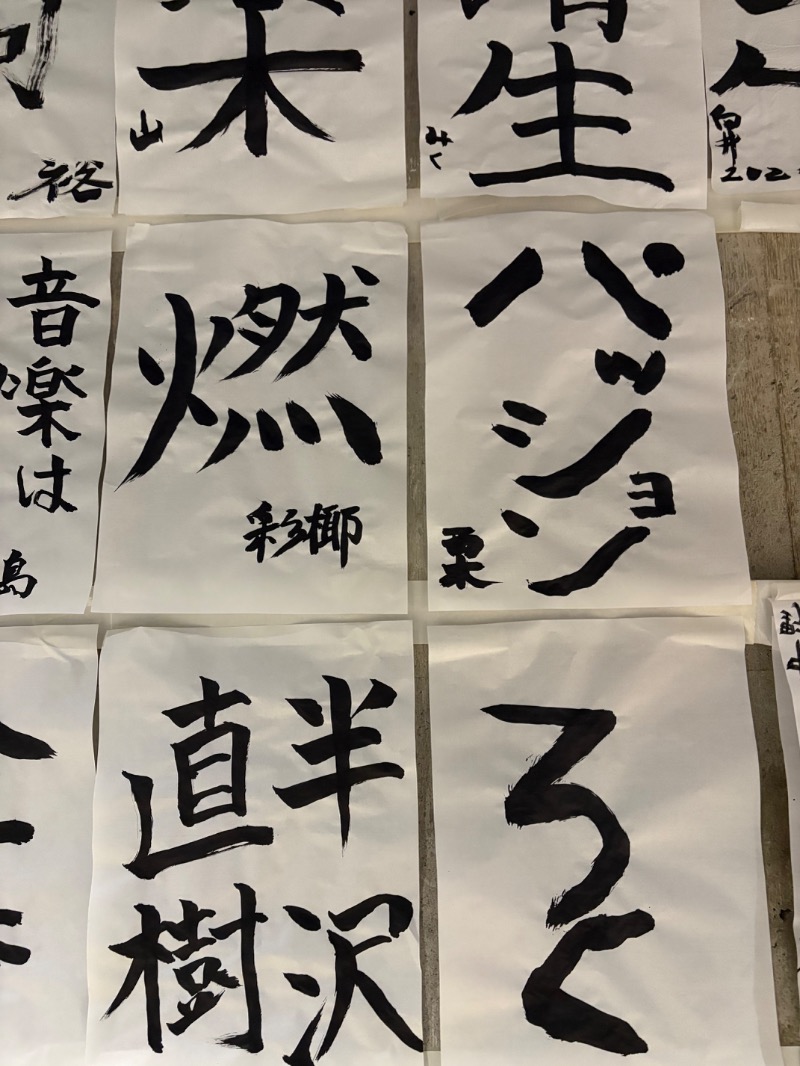 裕
山
生
みく
音楽は
島
燃
彩椰
パッション
栗
半沢
直樹
ろく